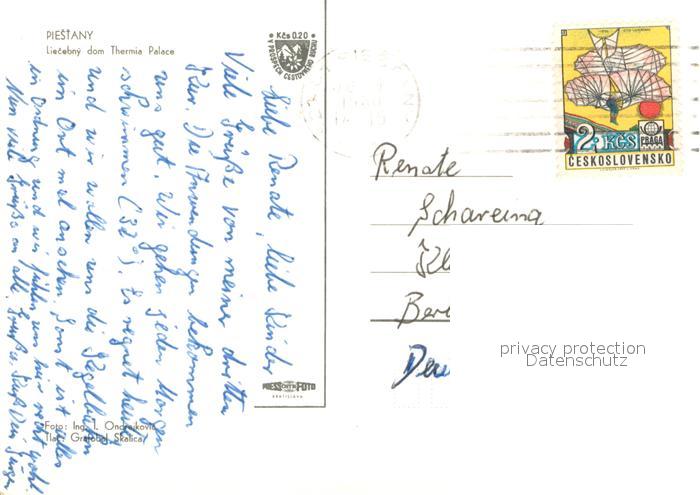 PIEŠŤANY
Liečebný dom Thermia Palace
Kčs 0.20
V PROSPECH CESTOVNÉHO RUCHU
Liebe Renate, liebe Kinder
Viele Grüße von meiner dritten
Kur. Die Anwendungen bekommen
uns gut. Wir gehen jeden Morgen
schwimmen (32°). Es regnet heute
und wir wollen uns die
im Ort mal ansehen. Sonst ist alles
in Ordnung und wir fühlen uns hier recht wohl
Nun viele Grüße an alle.
PRESSFOTO
BRATISLAVA
Foto: Ing. I. Ondrejkovič
Tlač: Grafobal Skalica
2. KČS
PRAGA
ČESKOSLOVENSKO
Renate
Scharema
Kl
Ber
Deu
privacy protection
Datenschutz